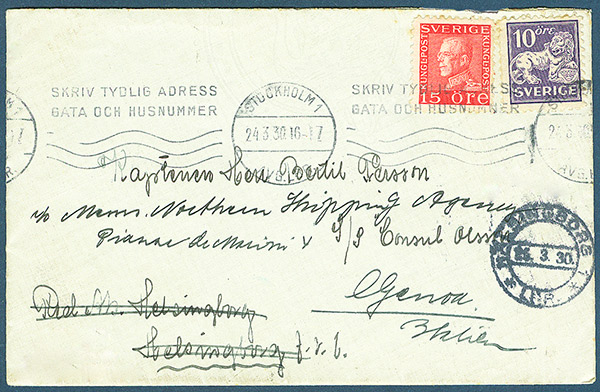 SVERIGE
KUNGLPOST KUNGLPOST
15 ÖRE
10 ÖRE
SVERIGE
SKRIV TYDLIG ADRESS
GATA OCH HUSNUMMER
STOCKHOLM 1
24.3.30.16-17
AVG.
SKRIV TYDLIG
GATA OCH HUSNUMMER
Kaptenen Herr Bertil Persson
c/o Messrs. Northern Shipping Agency
Piazza de Marini 4 S/S Consul Olsson
HÄLSINGBORG 1
26.3.30.
LBR.
Genoa.
Italien
Red. A.B. Helsingborg
Helsingborg f.v.b.